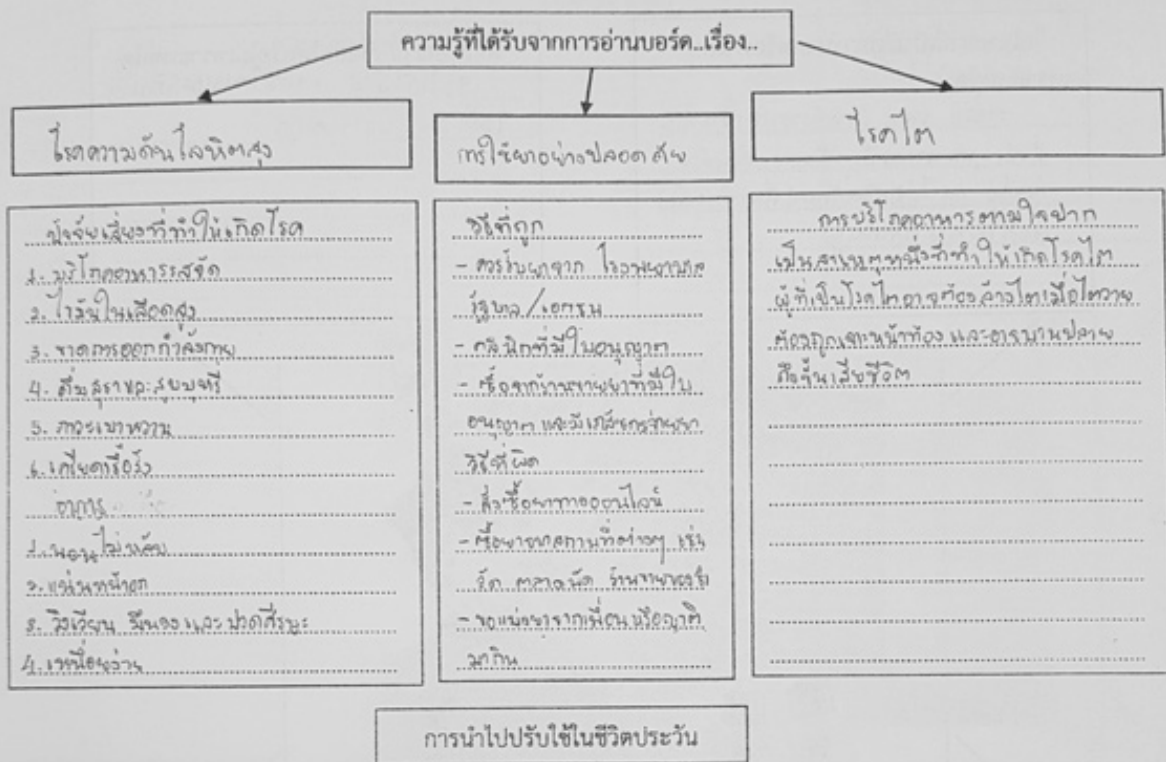 ความรู้ที่ได้รับจากการอ่านบอร์ด..เรื่อง..
โรคความดันโลหิตสูง
ปัจจัยเสี่ยงที่ทำให้เกิดโรค
1. บริโภคอาหารรสจัด
2. ไขมันในเลือดสูง
3. ขาดการออกกำลังกาย
4. ดื่มสุราและสูบบุหรี่
5. ภาวะเบาหวาน
6. เครียดเรื้อรัง
อาการ
1. นอนไม่หลับ
2. แน่นหน้าอก
3. วิงเวียน มึนงง และปวดศีรษะ
4. เหนื่อยง่าย
การใช้ยาอย่างปลอดภัย
วิธีที่ถูก
- ควรรับยาจาก โรงพยาบาล
รัฐบาล/เอกชน
- คลินิกที่มีใบอนุญาต
- ซื้อจากร้านขายยาที่มีใบ
อนุญาต และมีเภสัชกรจ่ายยา
วิธีที่ผิด
- สั่งซื้อยาทางออนไลน์
- ซื้อยาจากสถานที่ต่างๆ เช่น
วัด ตลาดนัด ร้านขายของชำ
- ขอแบ่งยาจากเพื่อนหรือญาติ
มากิน
โรคไต
การบริโภคอาหารตามใจปาก
เป็นสาเหตุหนึ่งที่ทำให้เกิดโรคไต
ผู้ที่เป็นโรคไตอาจต้องล้างไตเมื่อไตวาย
ต้องถูกเจาะหน้าท้อง และอาจบานปลาย
ถึงขั้นเสียชีวิต
การนำไปปรับใช้ในชีวิตประวัน